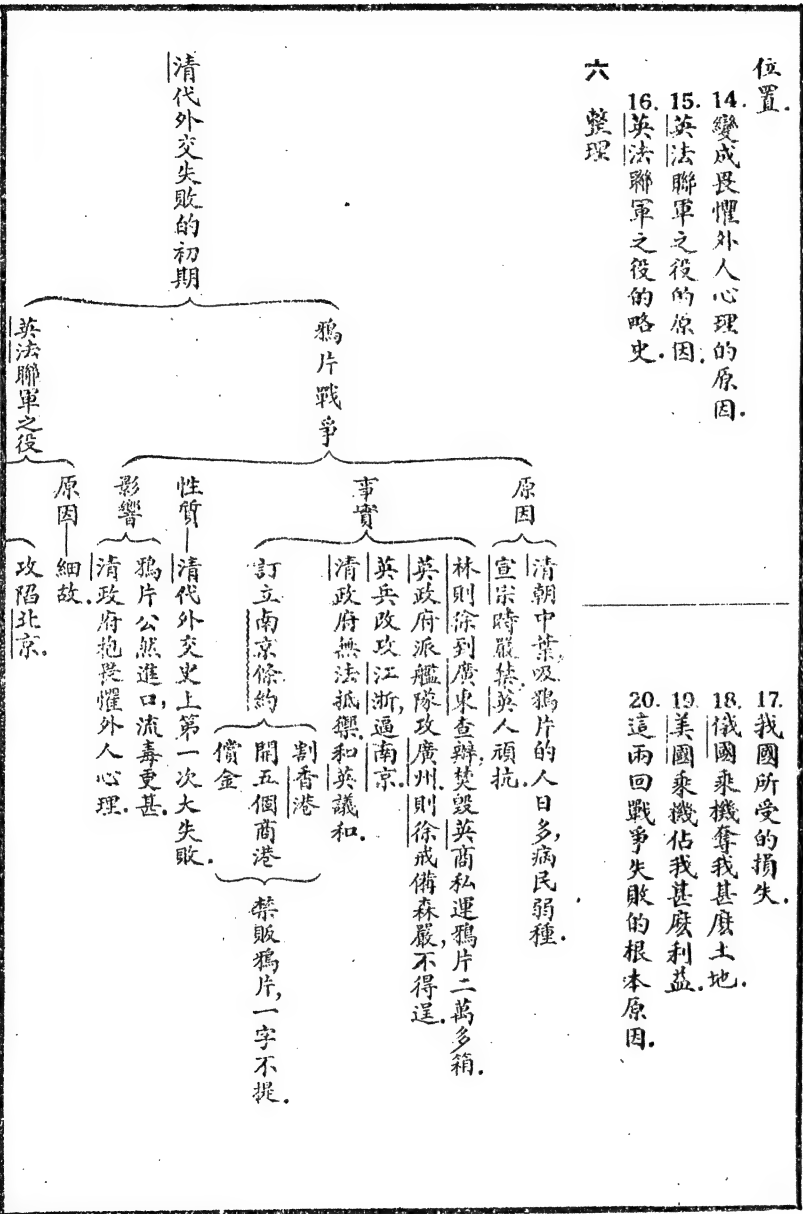 位置.
14. 變成畏懼外人心理的原因.
15. 英法聯軍之役的原因.
16. 英法聯軍之役的略史.
17. 我國所受的損失.
18. 俄國乘機奪我甚麼土地.
19. 美國乘機佔我甚麼利益.
20. 這兩回戰爭失敗的根本原因.
六 整理
清代外交失敗的初期
鴉片戰爭
原因
清朝中葉,吸鴉片的人日多,病民弱種.
宣宗時嚴禁,英人頑抗.
事實
林則徐到廣東查辦,焚毀英商私運鴉片二萬多箱.
英政府派艦隊攻廣州.則徐戒備森嚴,不得逞.
英兵改攻江浙,逼南京.
清政府無法抵禦.和英議和.
訂立南京條約
割香港
開五個商港
償金
禁販鴉片,一字不提.
性質—清代外交史上第一次大失敗.
影響
鴉片公然進口,流毒更甚.
清政府抱畏懼外人心理.
英法聯軍之役
原因—細故.
攻陷北京.